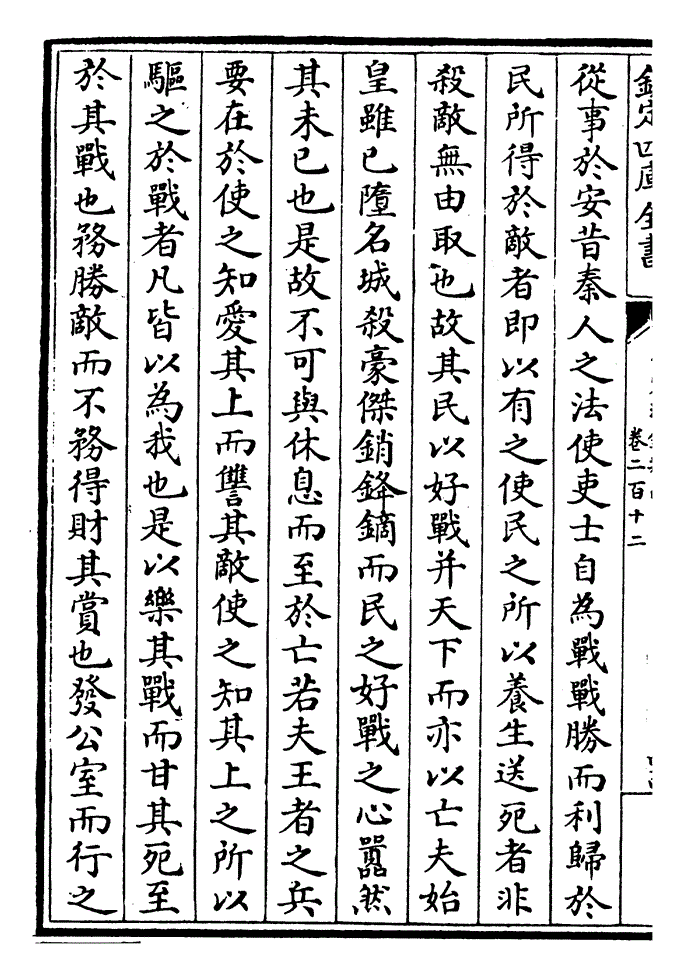 欽定四庫全書
卷二百十二
從事於安昔秦人之法使吏士自為戰戰勝而利歸於
民所得於敵者即以有之使民之所以養生送死者非
殺敵無由取也故其民以好戰并天下而亦以亡夫始
皇雖已墮名城殺豪傑銷鋒鏑而民之好戰之心囂然
其未已也是故不可與休息而至於亡若夫王者之兵
要在於使之知愛其上而讐其敵使之知其上之所以
驅之於戰者凡皆以為我也是以樂其戰而甘其死至
於其戰也務勝敵而不務得財其賞也發公室而行之